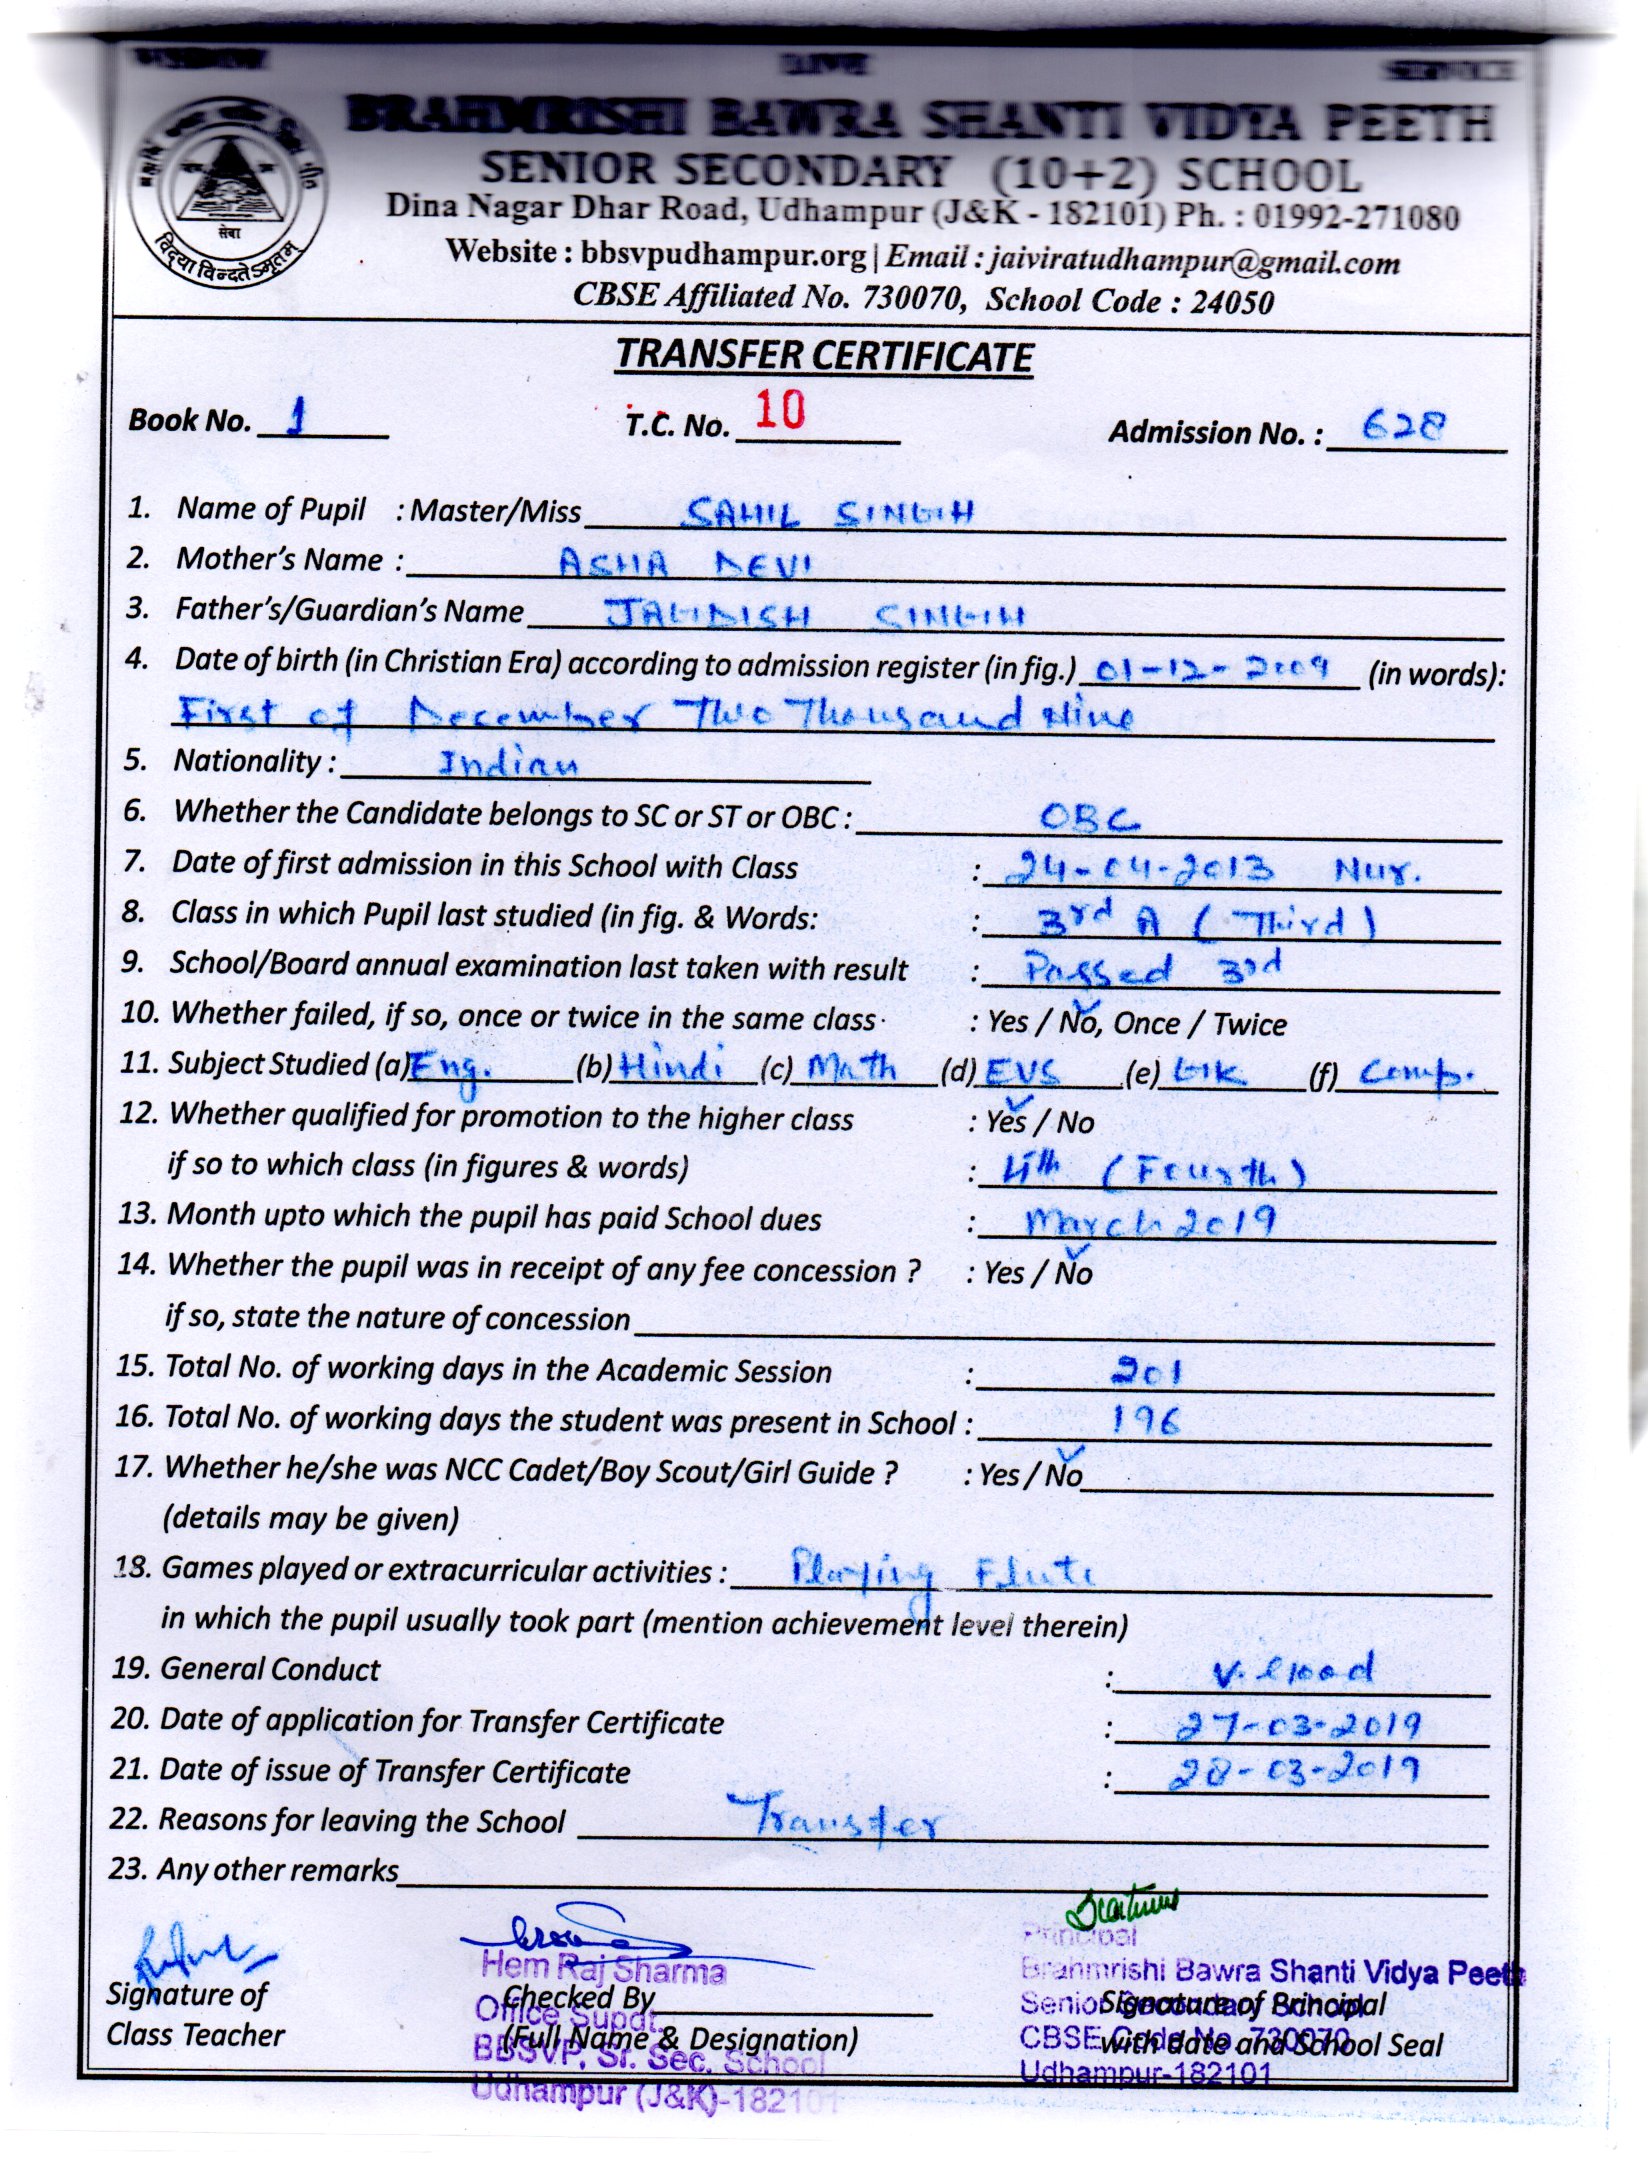 WISDOM LOVE SERVICE
BRAHMRISHI BAWRA SHANTI VIDYA PEETH
SENIOR SECONDARY (10+2) SCHOOL
Dina Nagar Dhar Road, Udhampur (J&K - 182101) Ph. : 01992-271080
Website : bbsvpudhampur.org | Email : jaiviratudhampur@gmail.com
CBSE Affiliated No. 730070, School Code : 24050
सेवा
विद्या विन्दतेऽमृतम्
TRANSFER CERTIFICATE
Book No. 1 T.C. No. 10 Admission No. : 628
1. Name of Pupil : Master/Miss SAHIL SINGH
2. Mother's Name : ASHA DEVI
3. Father's/Guardian's Name JAGDISH SINGH
4. Date of birth (in Christian Era) according to admission register (in fig.) 01-12-2009 (in words):
First of December Two Thousand Nine
5. Nationality : Indian
6. Whether the Candidate belongs to SC or ST or OBC : OBC
7. Date of first admission in this School with Class : 24-04-2013 Nur.
8. Class in which Pupil last studied (in fig. & Words: : 3rd A (Third)
9. School/Board annual examination last taken with result : Passed 3rd
10. Whether failed, if so, once or twice in the same class : Yes / No, Once / Twice
11. Subject Studied (a) Eng. (b) Hindi (c) Math (d) EVS (e) GK (f) Comp.
12. Whether qualified for promotion to the higher class : Yes / No
if so to which class (in figures & words) : 4th (Fourth)
13. Month upto which the pupil has paid School dues : March 2019
14. Whether the pupil was in receipt of any fee concession ? : Yes / No
if so, state the nature of concession
15. Total No. of working days in the Academic Session : 201
16. Total No. of working days the student was present in School : 196
17. Whether he/she was NCC Cadet/Boy Scout/Girl Guide ? : Yes / No
(details may be given)
18. Games played or extracurricular activities : Playing Flute
in which the pupil usually took part (mention achievement level therein)
19. General Conduct : V. Good
20. Date of application for Transfer Certificate : 27-03-2019
21. Date of issue of Transfer Certificate : 28-03-2019
22. Reasons for leaving the School Transfer
23. Any other remarks
Signature of
Class Teacher
Hem Raj Sharma
Office Supdt.
BBSVP, Sr. Sec. School
Udhampur (J&K)-182101
Checked By
(Full Name & Designation)
Principal
Brahmrishi Bawra Shanti Vidya Peeth
Senior Secondary School
CBSE Code No. 730070
Udhampur-182101
Signature of Principal
with date and School Seal